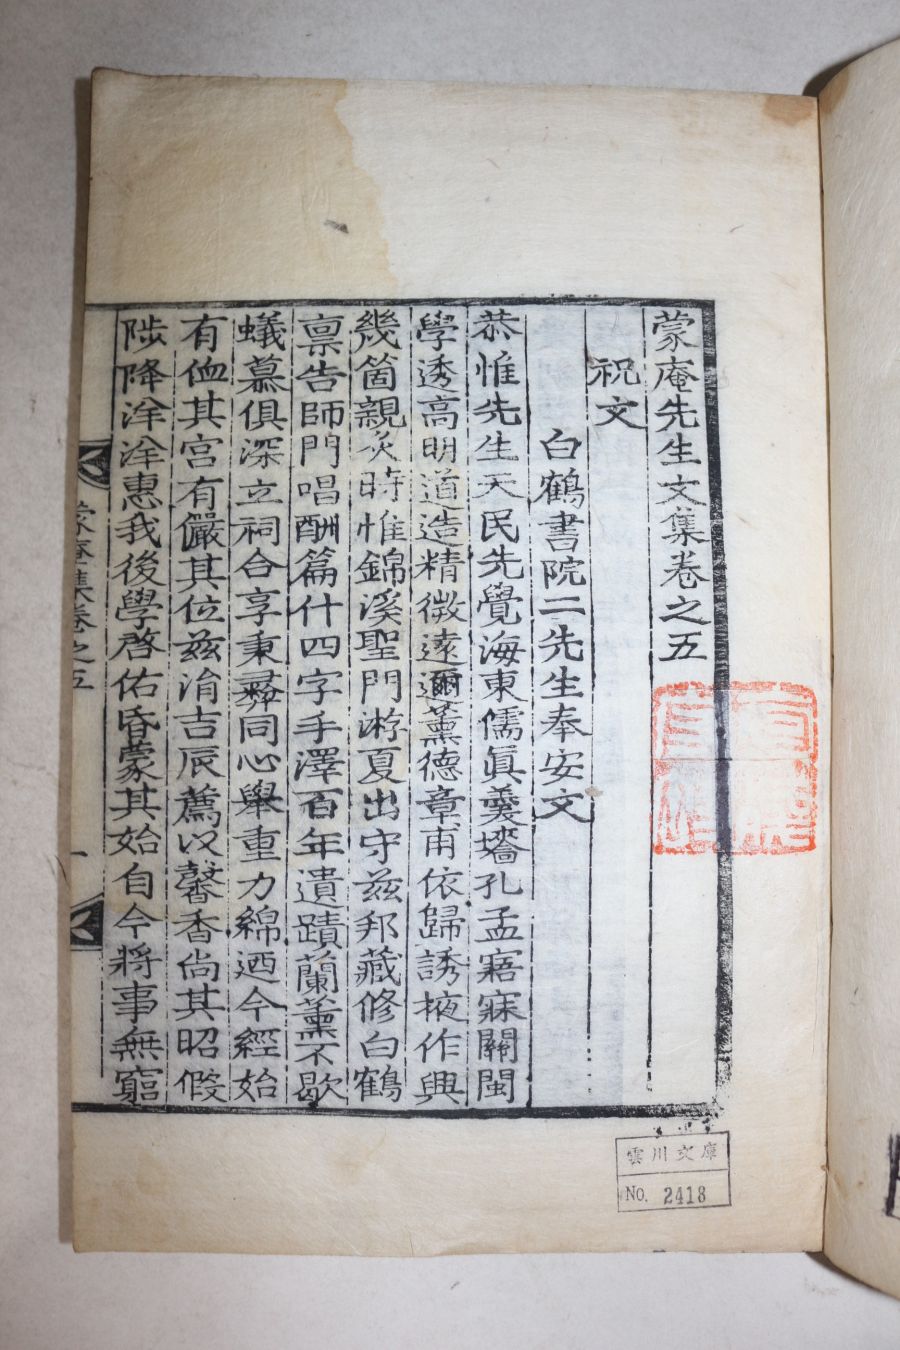 蒙庵先生文集卷之五
祝文
白鶴書院二先生奉安文
恭惟先生天民先覺海東儒眞羹墻孔孟寤寐關閩
學透高明道造精微遠邇薰德章甫依歸誘掖作興
幾箇親炙時惟錦溪聖門游夏出守茲邦藏修白鶴
禀告師門唱酬篇什四字手澤百年遺蹟蘭薰不歇
蟻慕俱深立祠合享秉彛同心舉重力綿迺今經始
有侐其宮有儼其位茲涓吉辰薦以馨香尚其昭假
陟降洋洋惠我後學啓佑昏蒙其始自今將事無窮
蒙庵集卷之五
一
雲川文庫
No. 2418